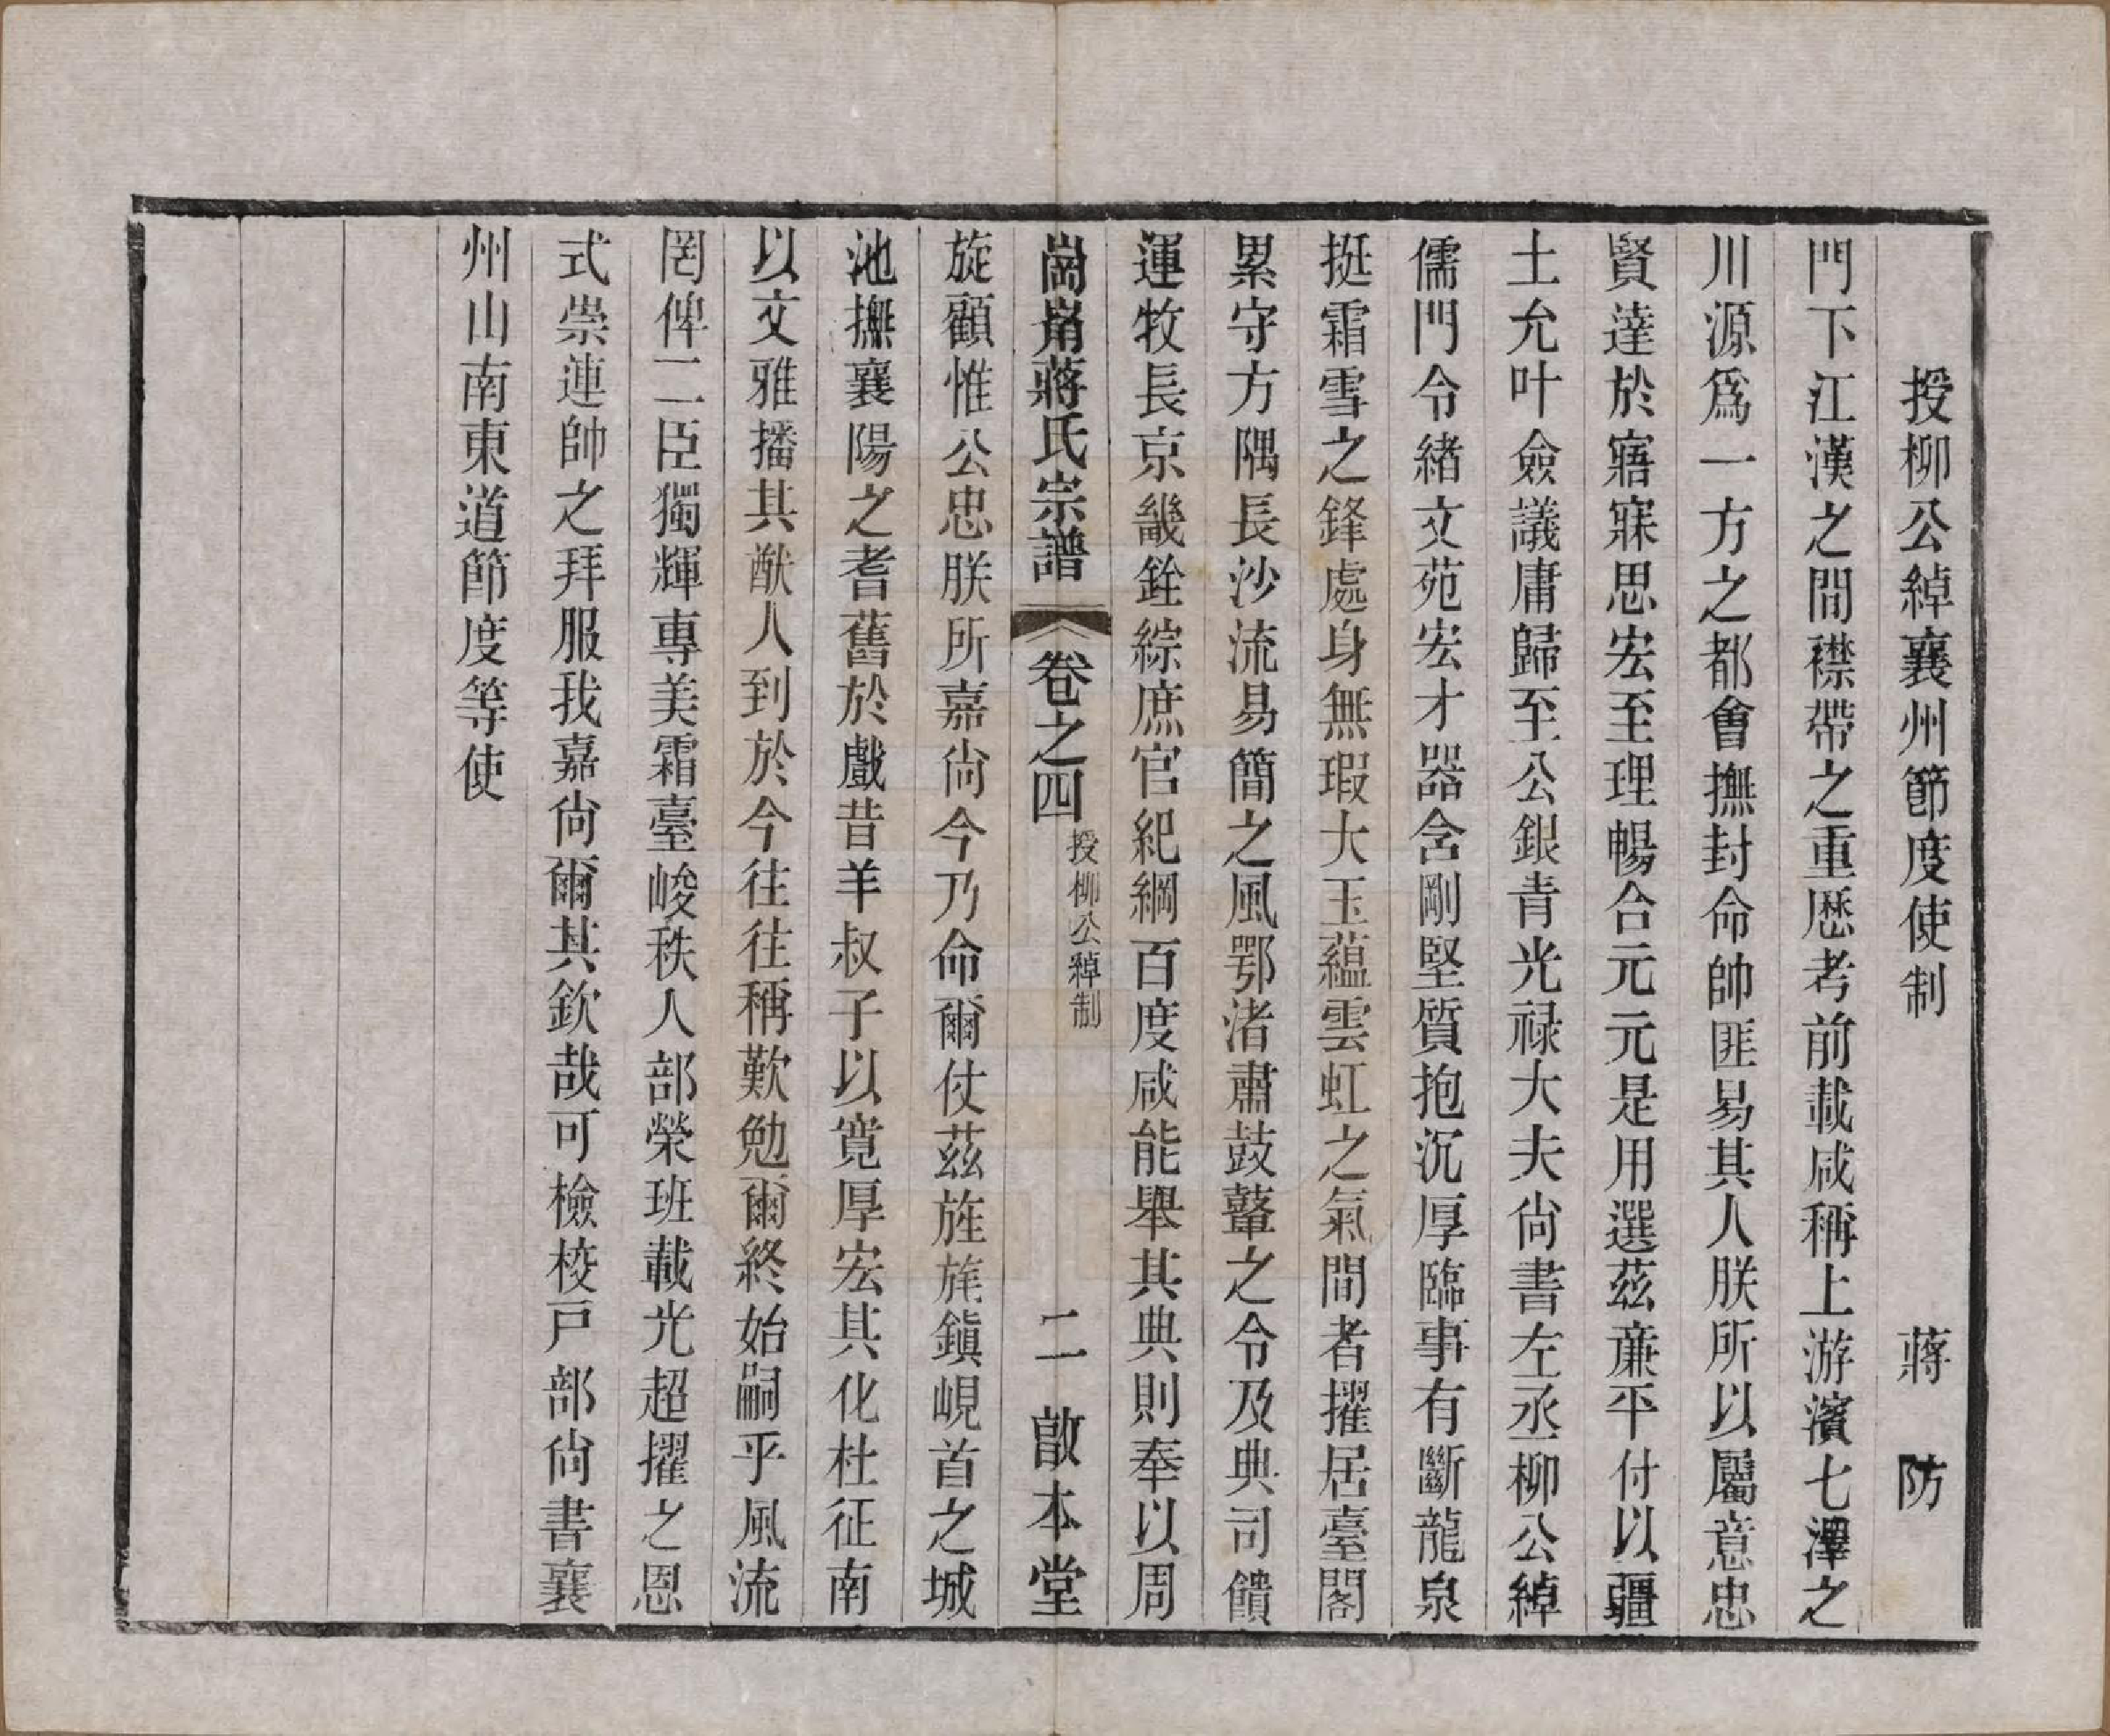 授柳公綽襄州節度使制　蔣　防
門下江漢之間襟帶之重歷考前載咸稱上游濱七澤之
川源爲一方之都會撫封命帥匪易其人朕所以屬意忠
賢達於寤寐思宏至理暢合元元是用選茲亷平付以疆
土允叶僉議庸歸至公銀青光禄大夫尙書左丞柳公綽
儒門令緒文苑宏才器含剛堅質抱沉厚臨事有斷龍泉
挺霜雪之鋒處身無瑕大玉蘊雲虹之氣間者擢居臺閣
累守方隅長沙流易簡之風鄂渚肅鼓鼙之令及典司饋
運牧長京畿銓綜庶官紀綱百度咸能舉其典則奉以周
崗㟁蔣氏宗譜　卷之四　授柳公綽制　二　啟本堂
旋顧惟公忠朕所嘉尙今乃命爾仗茲旌旄鎭峴首之城
池撫襄陽之耆舊於戲昔羊叔子以寬厚宏其化杜征南
以文雅播其猷人到於今往往稱歎勉爾終始嗣乎風流
罔俾二臣獨輝專美霜臺峻秩人部榮班載光超擢之恩
式崇連帥之拜服我嘉尙爾其欽哉可檢校戸部尙書襄
州山南東道節度等使